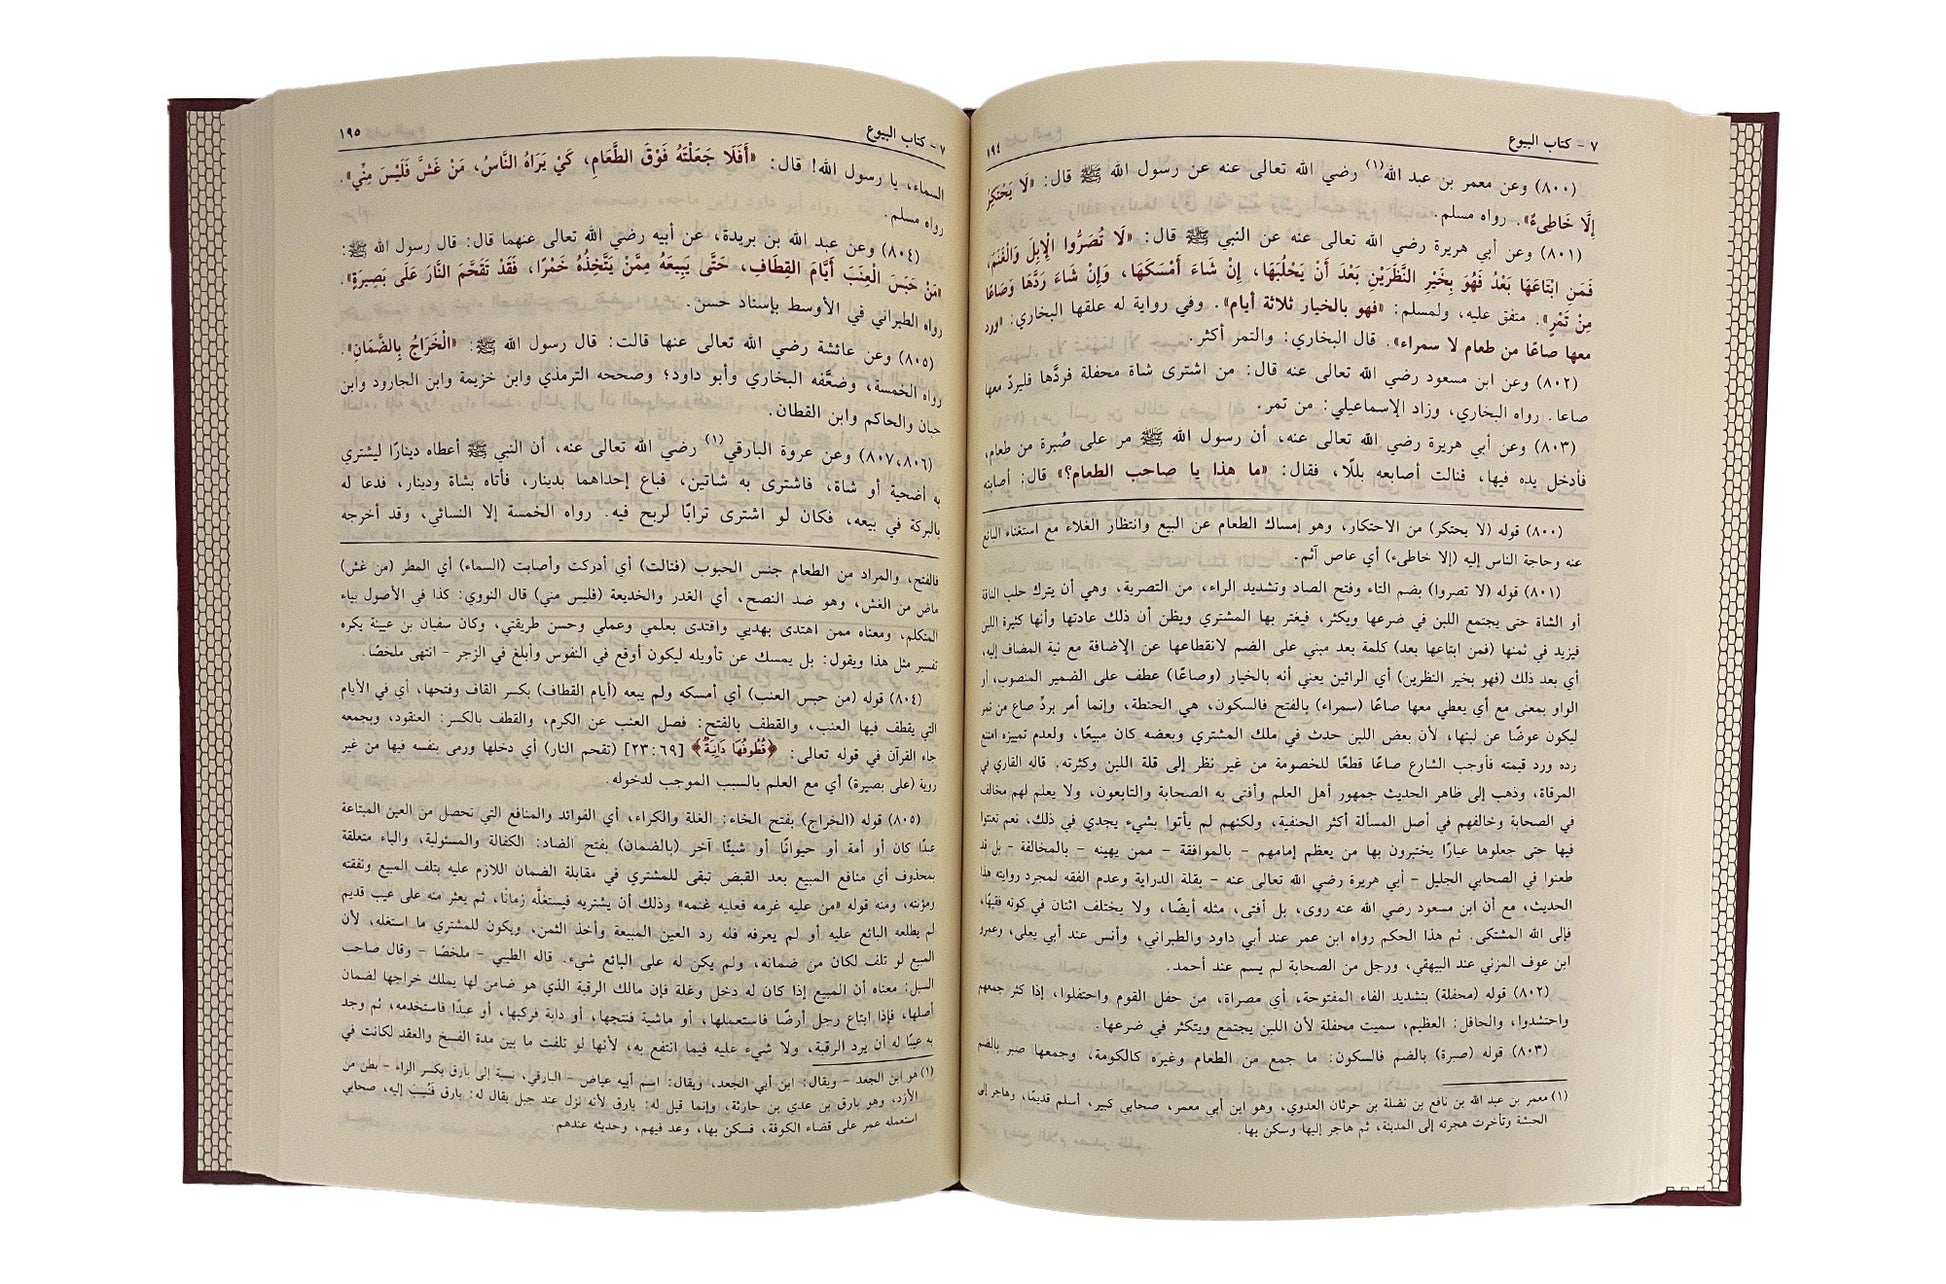 ٧ - كتاب البيوع ١٩٤
(٨٠٠) وعن معمر بن عبد الله(١) رضي الله تعالى عنه عن رسول الله ﷺ قال: «لَا يَحْتَكِرُ
إِلَّا خَاطِىءٌ». رواه مسلم.
(٨٠١) وعن أبي هريرة رضي الله تعالى عنه عن النبي ﷺ قال: «لَا تُصَرُّوا الْإِبِلَ وَالْغَنَمَ،
فَمَنِ ابْتَاعَهَا بَعْدُ فَهُوَ بِخَيْرِ النَّظَرَيْنِ بَعْدَ أَنْ يَحْلُبَهَا، إِنْ شَاءَ أَمْسَكَهَا، وَإِنْ شَاءَ رَدَّهَا وَصَاعًا
مِنْ تَمْرٍ». متفق عليه، ولمسلم: «فهو بالخيار ثلاثة أيام». وفي رواية له علقها البخاري: «ورد
معها صاعًا من طعام لا سمراء». قال البخاري: والتمر أكثر.
(٨٠٢) وعن ابن مسعود رضي الله تعالى عنه قال: من اشترى شاة محفلة فردَّها فليردّ معها
صاعا. رواه البخاري، وزاد الإسماعيلي: من تمر.
(٨٠٣) وعن أبي هريرة رضي الله تعالى عنه، أن رسول الله ﷺ مر على صُبرة من طعام،
فأدخل يده فيها، فنالت أصابعه بللًا، فقال: «ما هذا يا صاحب الطعام؟» قال: أصابته
(٨٠٠) قوله (لا يحتكر) من الاحتكار، وهو إمساك الطعام عن البيع وانتظار الغلاء مع استغناء البائع
عنه وحاجة الناس إليه (إلا خاطىء) أي عاص آثم.
(٨٠١) قوله (لا تصروا) بضم التاء وفتح الصاد وتشديد الراء، من التصرية، وهي أن يترك حلب الناقة
أو الشاة حتى يجتمع اللبن في ضرعها ويكثر، فيغتر بها المشتري ويظن أن ذلك عادتها وأنها كثيرة اللبن
فيزيد في ثمنها (فمن ابتاعها بعد) كلمة بعد مبني على الضم لانقطاعها عن الإضافة مع نية المضاف إليه،
أي بعد ذلك (فهو بخير النظرين) أي الرائين يعني أنه بالخيار (وصاعًا) عطف على الضمير المنصوب، أو
الواو بمعنى مع أي يعطي معها صاعًا (سمراء) بالفتح فالسكون، هي الحنطة، وإنما أمر بردِّ صاع من تمر
ليكون عوضًا عن لبنها، لأن بعض اللبن حدث في ملك المشتري وبعضه كان مبيعًا، ولعدم تمييزه امتنع
رده ورد قيمته فأوجب الشارع صاعًا قطعًا للخصومة من غير نظر إلى قلة اللبن وكثرته. قاله القاري في
المرقاة، وذهب إلى ظاهر الحديث جمهور أهل العلم وأفتى به الصحابة والتابعون، ولا يعلم لهم مخالف
في الصحابة وخالفهم في أصل المسألة أكثر الحنفية، ولكنهم لم يأتوا بشيء يجدي في ذلك، نعم تعنتوا
فيها حتى جعلوها عيارًا يختبرون بها من يعظم إمامهم - بالموافقة - ممن يهينه - بالمخالفة - بل قد
طعنوا في الصحابي الجليل - أبي هريرة رضي الله عنه - بقلة الدراية وعدم الفقه لمجرد روايته هذا
الحديث، مع أن ابن مسعود رضي الله عنه روى، بل أفتى، مثله أيضًا، ولا يختلف اثنان في كونه فقيهًا،
فإلى الله المشتكى. ثم هذا الحكم رواه ابن عمر عند أبي داود والطبراني، وأنس عند أبي يعلى، وعمرو
ابن عوف المزني عند البيهقي، ورجل من الصحابة لم يسم عند أحمد.
(٨٠٢) قوله (محفلة) بتشديد الفاء المفتوحة، أي مصراة، من حفل القوم واحتفلوا، إذا كثر جمعهم
واحتشدوا، والحافل: العظيم، سميت محفلة لأن اللبن يجتمع ويتكثر في ضرعها.
(٨٠٣) قوله (صبرة) بالضم فالسكون: ما جمع من الطعام وغيره كالكومة، وجمعها صبر بالضم
(١) معمر بن عبد الله بن نافع بن نضلة بن حرثان العدوي، وهو ابن أبي معمر، صحابي كبير، أسلم قديمًا، وهاجر إلى
الحبشة وتأخرت هجرته إلى المدينة، ثم هاجر إليها وسكن بها.
٧ - كتاب البيوع ١٩٥
السماء، يا رسول الله! قال: «أَفَلَا جَعَلْتَهُ فَوْقَ الطَّعَامِ، كَيْ يَرَاهُ النَّاسُ، مَنْ غَشَّ فَلَيْسَ مِنِّي».
رواه مسلم.
(٨٠٤) وعن عبد الله بن بريدة، عن أبيه رضي الله تعالى عنهما قال: قال رسول الله ﷺ:
«مَنْ حَبَسَ الْعِنَبَ أَيَّامَ القِطَافِ، حَتَّى يَبِيعَهُ مِمَّنْ يَتَّخِذُهُ خَمْرًا، فَقَدْ تَقَحَّمَ النَّارَ عَلَى بَصِيرَةٍ».
رواه الطبراني في الأوسط بإسناد حسن.
(٨٠٥) وعن عائشة رضي الله تعالى عنها قالت: قال رسول الله ﷺ: «الْخَرَاجُ بِالضَّمَانِ».
رواه الخمسة، وضعَّفه البخاري وأبو داود؛ وصححه الترمذي وابن خزيمة وابن الجارود وابن
حبان والحاكم وابن القطان.
(٨٠٧،٨٠٦) وعن عروة البارقي(١) رضي الله تعالى عنه، أن النبي ﷺ أعطاه دينارًا ليشتري
به أضحية أو شاة، فاشترى به شاتين، فباع إحداهما بدينار، فأتاه بشاة ودينار، فدعا له
بالبركة في بيعه، فكان لو اشترى ترابًا لربح فيه. رواه الخمسة إلا النسائي، وقد أخرجه
فالفتح، والمراد من الطعام جنس الحبوب (فنالت) أي أدركت وأصابت (السماء) أي المطر (من غش)
ماض من الغش، وهو ضد النصح، أي الغدر والخديعة (فليس مني) قال النووي: كذا في الأصول بياء
المتكلم، ومعناه ممن اهتدى بهديي واقتدى بعلمي وعملي وحسن طريقتي، وكان سفيان بن عيينة يكره
تفسير مثل هذا ويقول: بل يمسك عن تأويله ليكون أوقع في النفوس وأبلغ في الزجر - انتهى ملخصًا.
(٨٠٤) قوله (من حبس العنب) أي أمسكه ولم يبعه (أيام القطاف) بكسر القاف وفتحها، أي في الأيام
التي يقطف فيها العنب، والقطف بالفتح: فصل العنب عن الكرم، والقطف بالكسر: العنقود، وبجمعه
جاء القرآن في قوله تعالى: ﴿قُطُوفُهَا دَانِيَةٌ﴾ [٦٩:٢٣] (تقحم النار) أي دخلها ورمى بنفسه فيها من غير
روية (على بصيرة) أي مع العلم بالسبب الموجب لدخوله.
(٨٠٥) قوله (الخراج) بفتح الخاء: الغلة والكراء، أي الفوائد والمنافع التي تحصل من العين المبتاعة
عبدًا كان أو أمة أو حيوانًا أو شيئًا آخر (بالضمان) بفتح الضاد: الكفالة والمسئولية، والباء متعلقة
بمحذوف أي منافع المبيع بعد القبض تبقى للمشتري في مقابلة الضمان اللازم عليه بتلف المبيع ونفقته
ومؤنته، ومنه قوله «من عليه غرمه فعليه غنمه» وذلك أن يشتريه فيستغلَّه زمانًا، ثم يعثر منه على عيب قديم
لم يطلعه البائع عليه أو لم يعرفه فله رد العين المبيعة وأخذ الثمن، ويكون للمشتري ما استغله، لأن
المبيع لو تلف لكان من ضمانه، ولم يكن له على البائع شيء. قاله الطيبي - ملخصًا - وقال صاحب
السبل: معناه أن المبيع إذا كان له دخل وغلة فإن مالك الرقبة الذي هو ضامن لها يملك خراجها لضمان
أصلها، فإذا ابتاع رجل أرضًا فاستعملها، أو ماشية فنتجها، أو دابة فركبها، أو عبدًا فاستخدمه، ثم وجد
به عيبًا له أن يرد الرقبة، ولا شيء عليه فيما انتفع به، لأنها لو تلفت ما بين مدة الفسخ والعقد لكانت في
(١) هو ابن الجعد - ويقال: ابن أبي الجعد، ويقال: اسم أبيه عياض - البارقي، نسبة إلى بارق بكسر الراء - بطن من
الأزد، وهو بارق بن عدي بن حارثة، وإنما قيل له: بارق لأنه نزل عند جبل يقال له: بارق فنُسِب إليه، صحابي
استعمله عمر على قضاء الكوفة، فسكن بها، وعد فيهم، وحديثه عندهم.